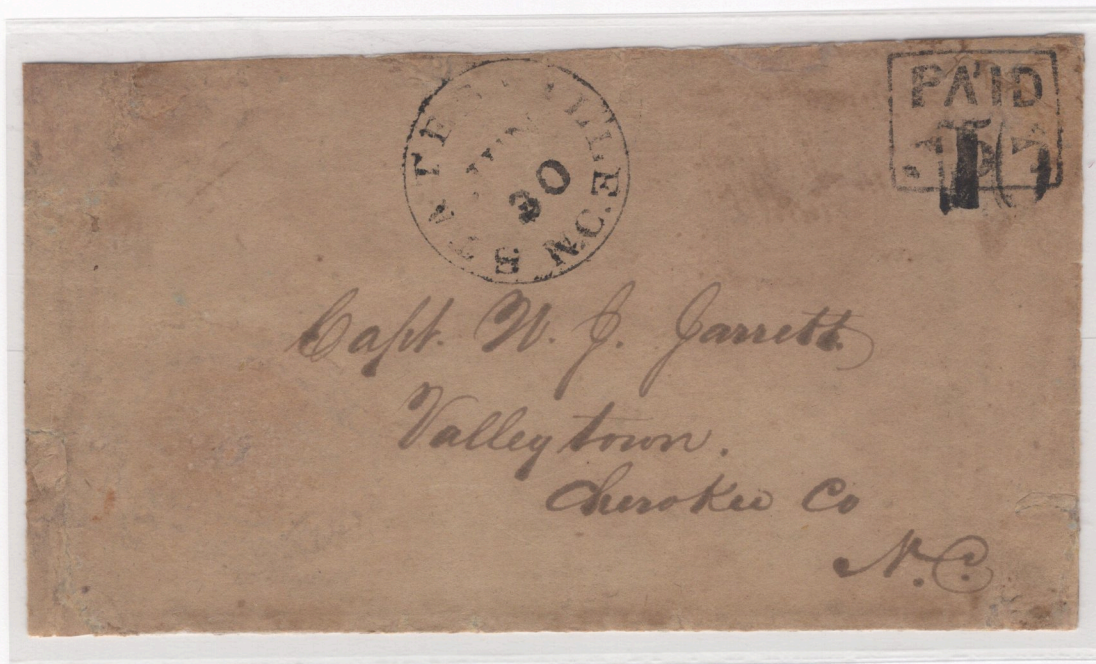 STATESVILLE N.C.
JUN
30
PAID
10
Capt. W. J. Jarrett
Valleytown.
Cherokee Co
N.C.